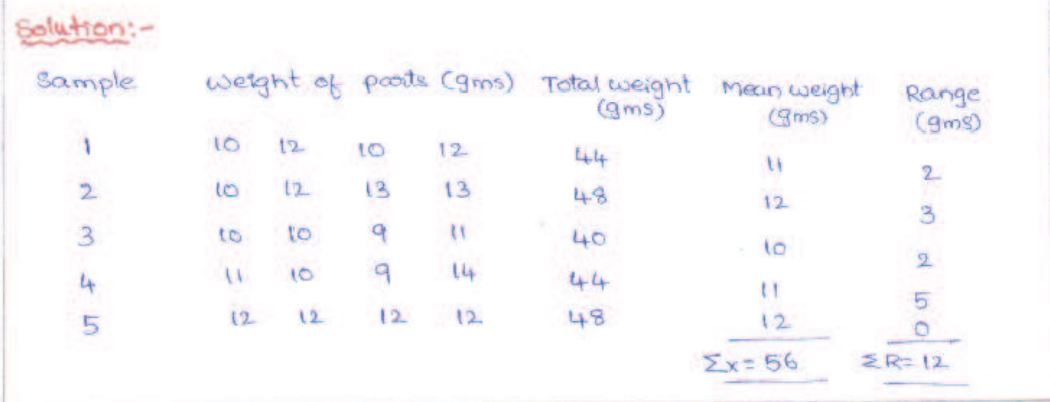 Solution:-
Sample weight of parts (gms) Total weight (gms) Mean weight (gms) Range (gms)
1 10 12 10 12 44 11 2
2 10 12 13 13 48 12 3
3 10 10 9 11 40 10 2
4 11 10 9 14 44 11 5
5 12 12 12 12 48 12 0
Σx = 56 ΣR = 12